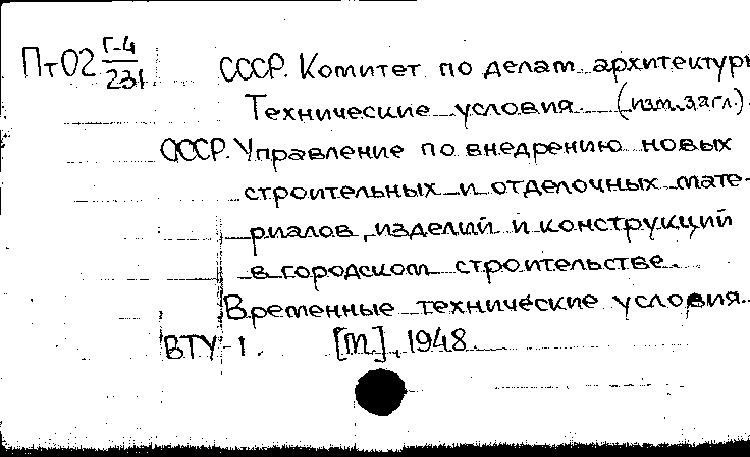 Пт02 Г-4/231 СССР. Комитет по делам архитектуры
Технические условия (изм.загл.)
СССР. Управление по внедрению новых
строительных и отделочных мате-
риалов, изделий и конструкций
в городском строительстве.
Временные технические условия.
ВТУ-1. [М.], 1948.